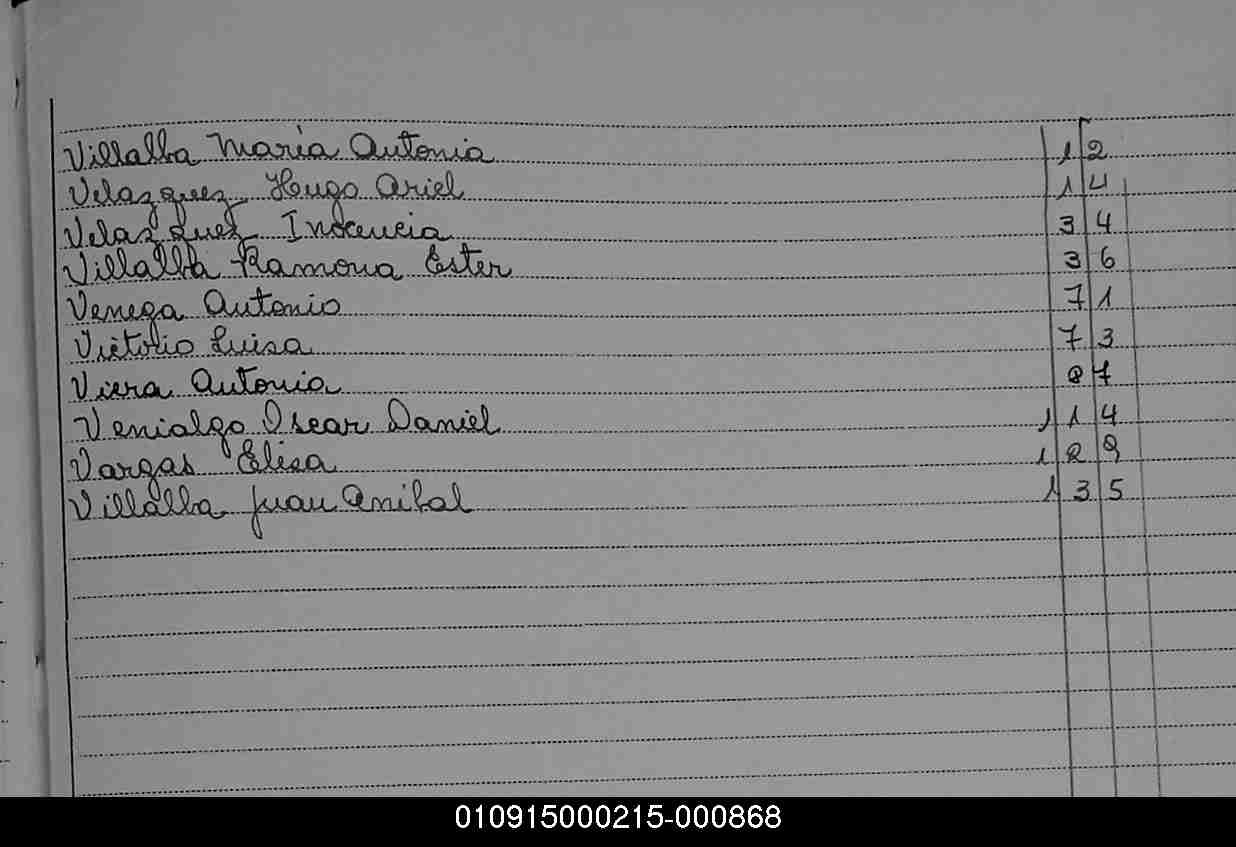 Villalba María Antonia 12
Velazquez Hugo Ariel 14
Velazquez Inocencia 34
Villalba Ramona Ester 36
Venega Antonio 71
Victorio Luisa 73
Viera Antonia 87
Venialgo Oscar Daniel 114
Vargas Elisa 129
Villalba Juan Anibal 135
010915000215-000868